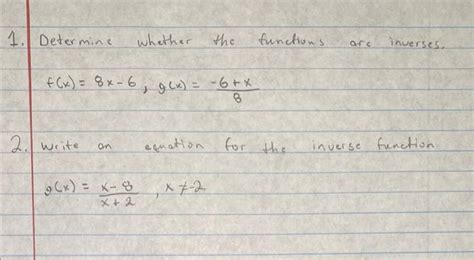 1. Determine whether the functions are inverses.
f(x) = 8x-6, g(x) = -6+x
8
2. Write an equation for the inverse function
g(x) = x-8
x+2 , x ≠ -2